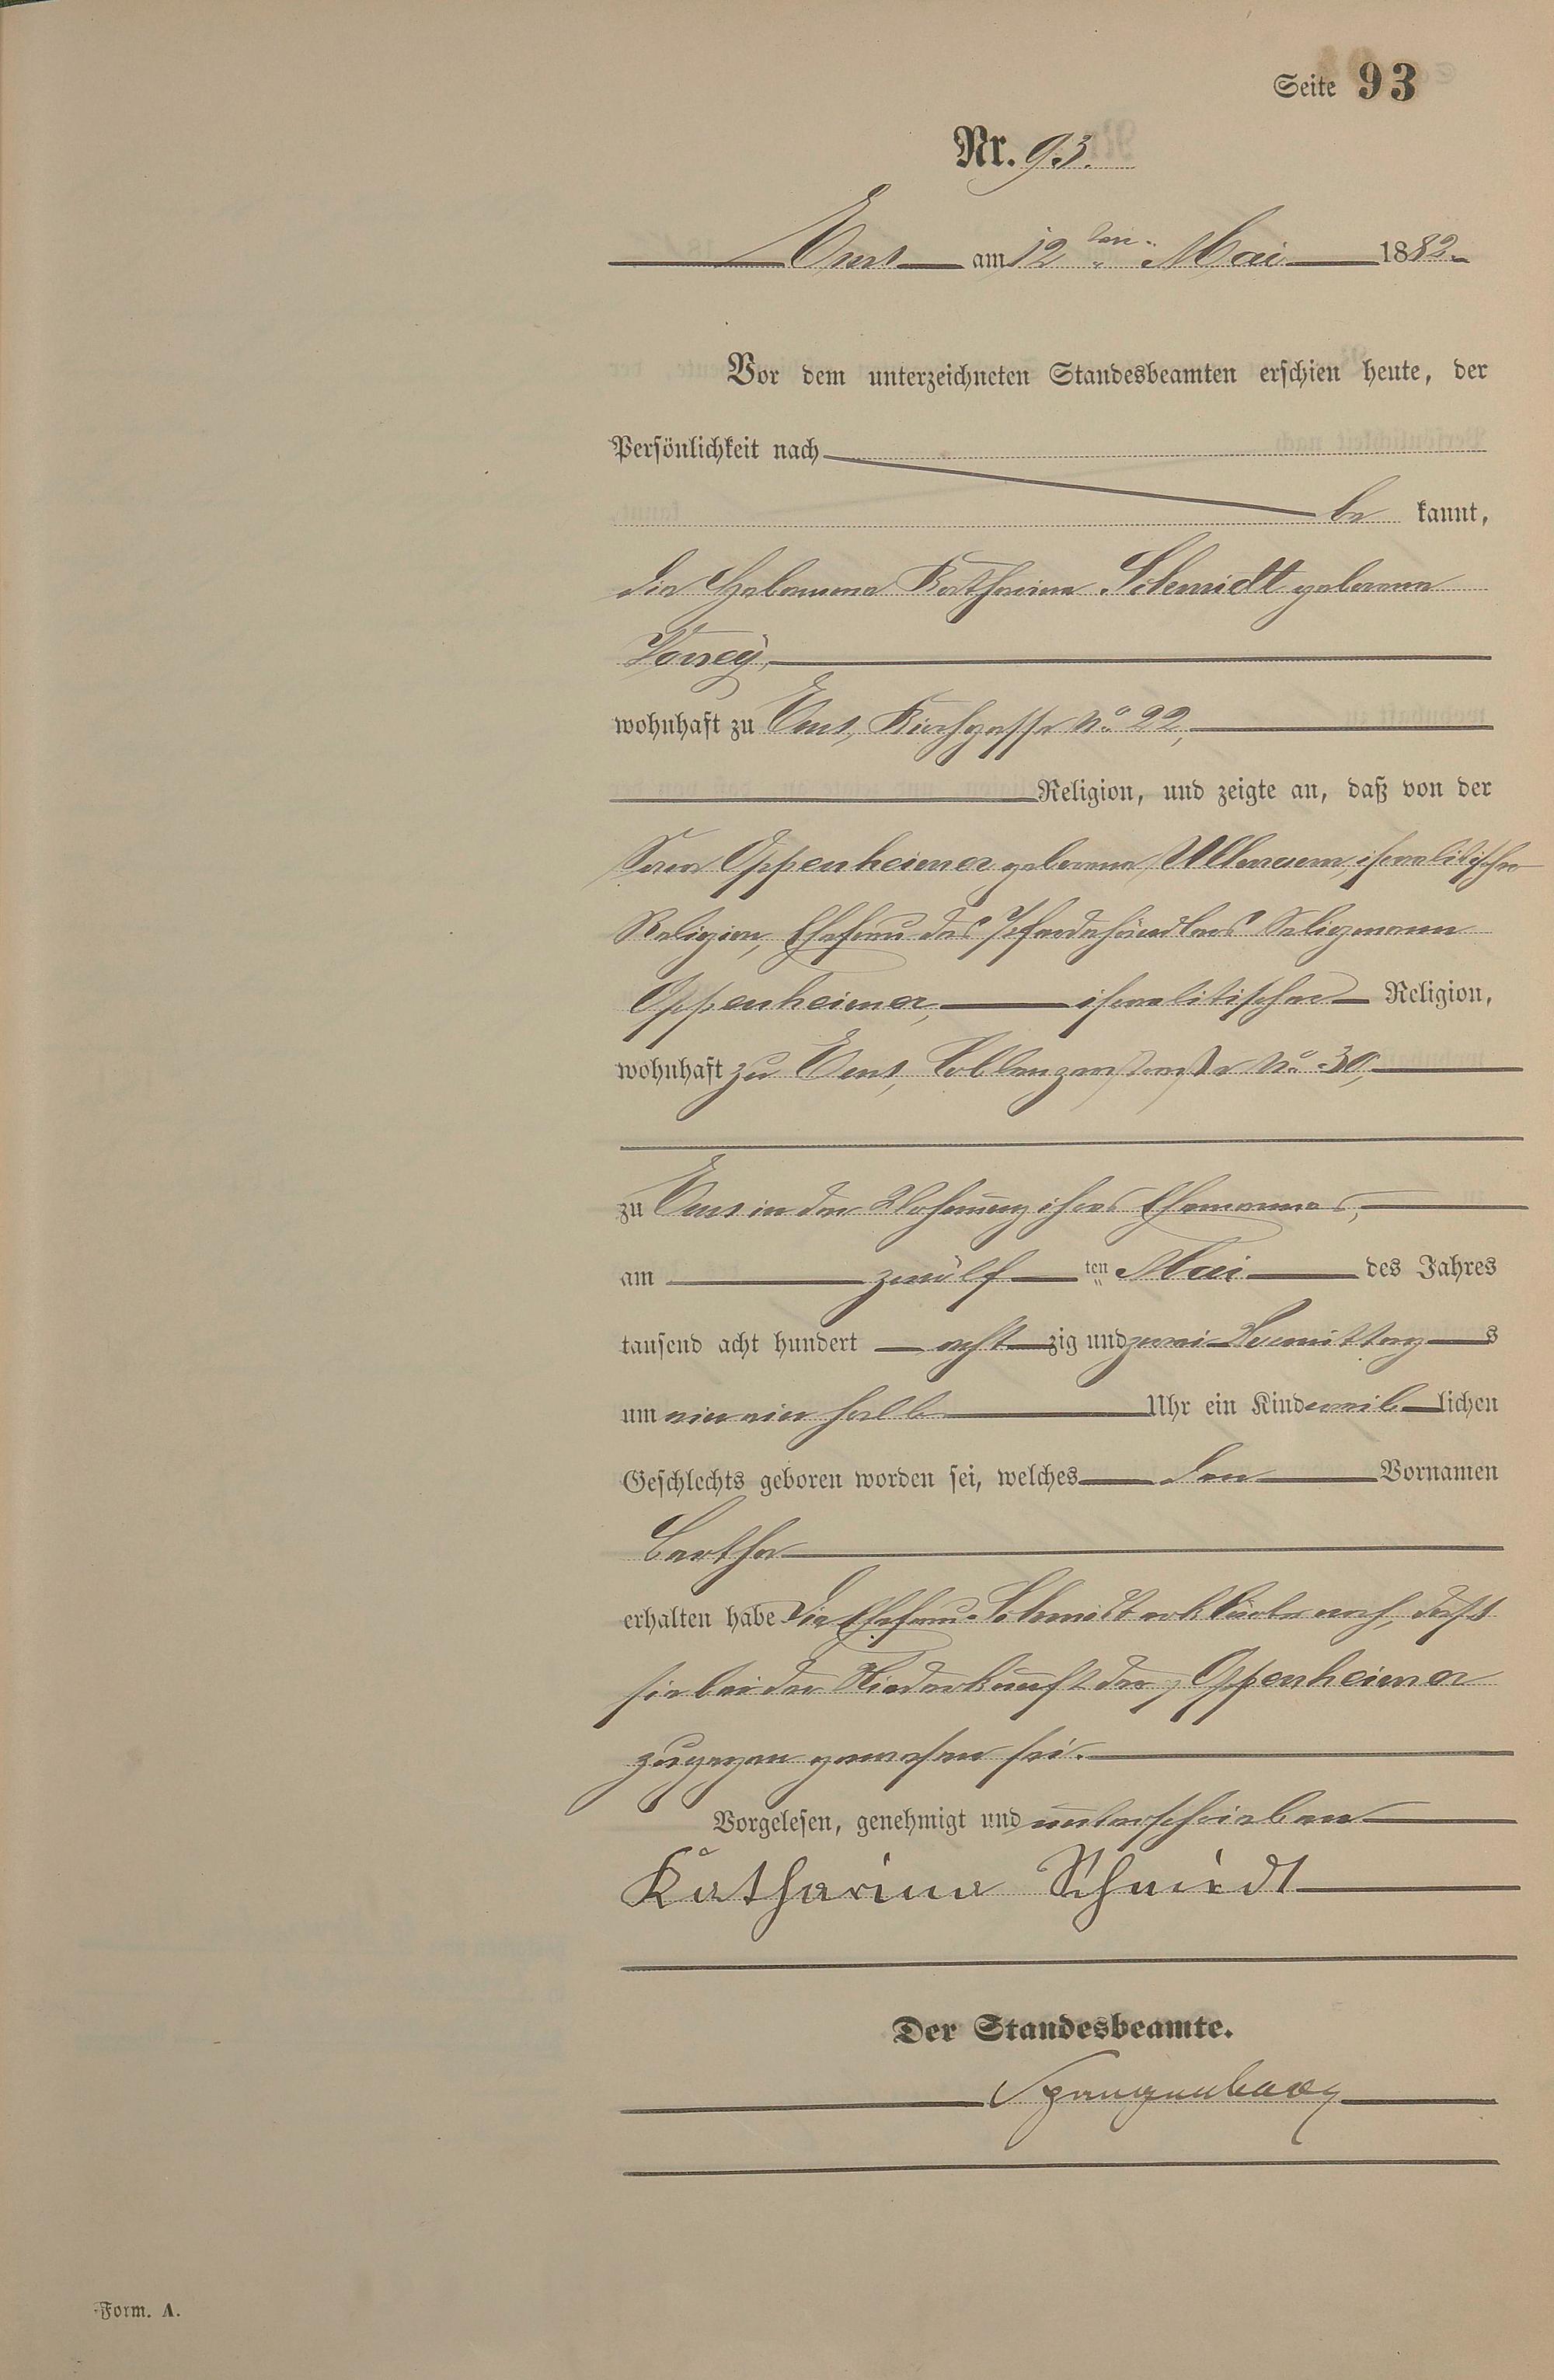 Seite 93
Nr. 93.
Ems am 12ten Mai 1882
Vor dem unterzeichneten Standesbeamten erschien heute, der
Persönlichkeit nach
be kannt,
die Hebamme Katharina Schmidt geborene
wohnhaft zu Ems, Kirchgasse No 22,
Religion, und zeigte an, daß von der
Sara Oppenheimer geborene Ullmann, israelitischer
Religion, Ehefrau des Pferdehändlers Seligmann
Oppenheimer, israelitischer Religion,
wohnhaft zu Ems, Coblenzerstraße No 30,
zu Ems in der Wohnung ihres Ehemannes,
am zwölf ten Mai des Jahres
tausend acht hundert acht zig und zwei Vormittag s
um ein halb Uhr ein Kind weib lichen
Geschlechts geboren worden sei, welches den Vornamen
Bertha
erhalten habe Die Ehefrau Schmidt erklärte noch, daß
sie bei der Niederkunft der Oppenheimer
zugegen gewesen sei.
Vorgelesen, genehmigt und unterschrieben
Katharina Schmidt
Der Standesbeamte.
Spangenberg
Form. A.